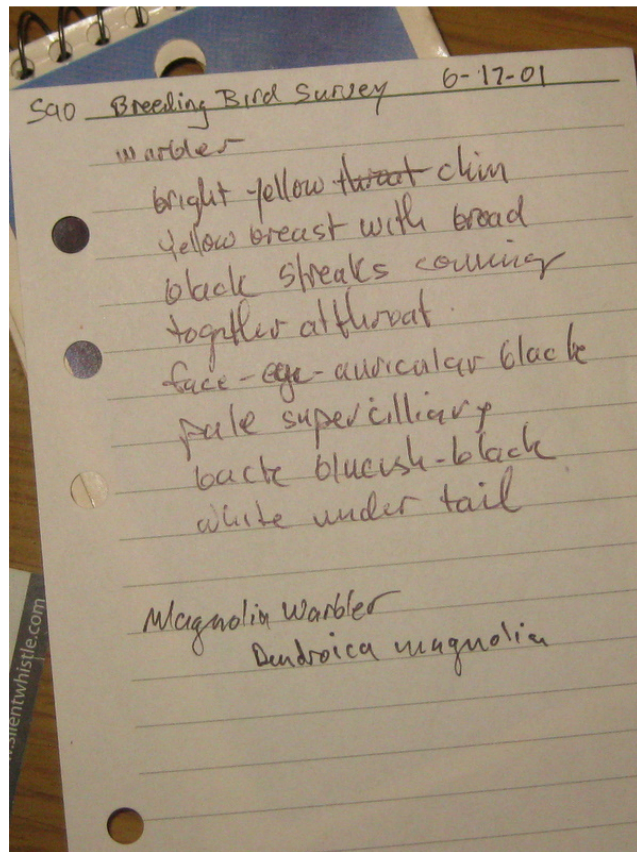 Sao Breeding Bird Survey 6-17-01
warbler
bright yellow throat chin
yellow breast with broad
black streaks coming
together at throat.
face-eye-auricular black
pale supercilliary
back blueish-black
white under tail
Magnolia Warbler
Dendroica magnolia
silentwhistle.com